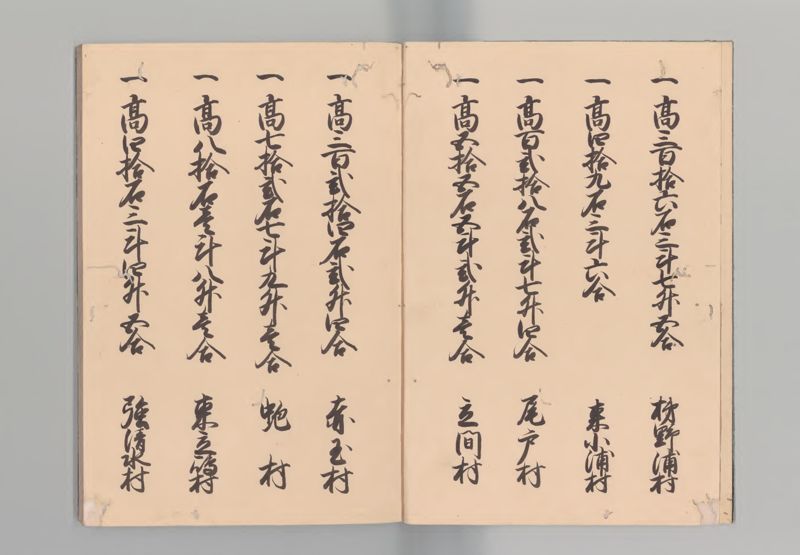 一高三百拾六石三斗七升五合 柿野浦村
一高四拾九石三斗六合 東小浦村
一高百弐拾八石弐斗七升四合 尾戸村
一高五拾五石五斗弐升壱合 立間村
一高三百弐拾四石弐升四合 赤玉村
一高七拾弐石七斗九升壱合 蚫村
一高八拾石壱斗八升壱合 東立嶋村
一高四拾石三斗四升五合 強清水村